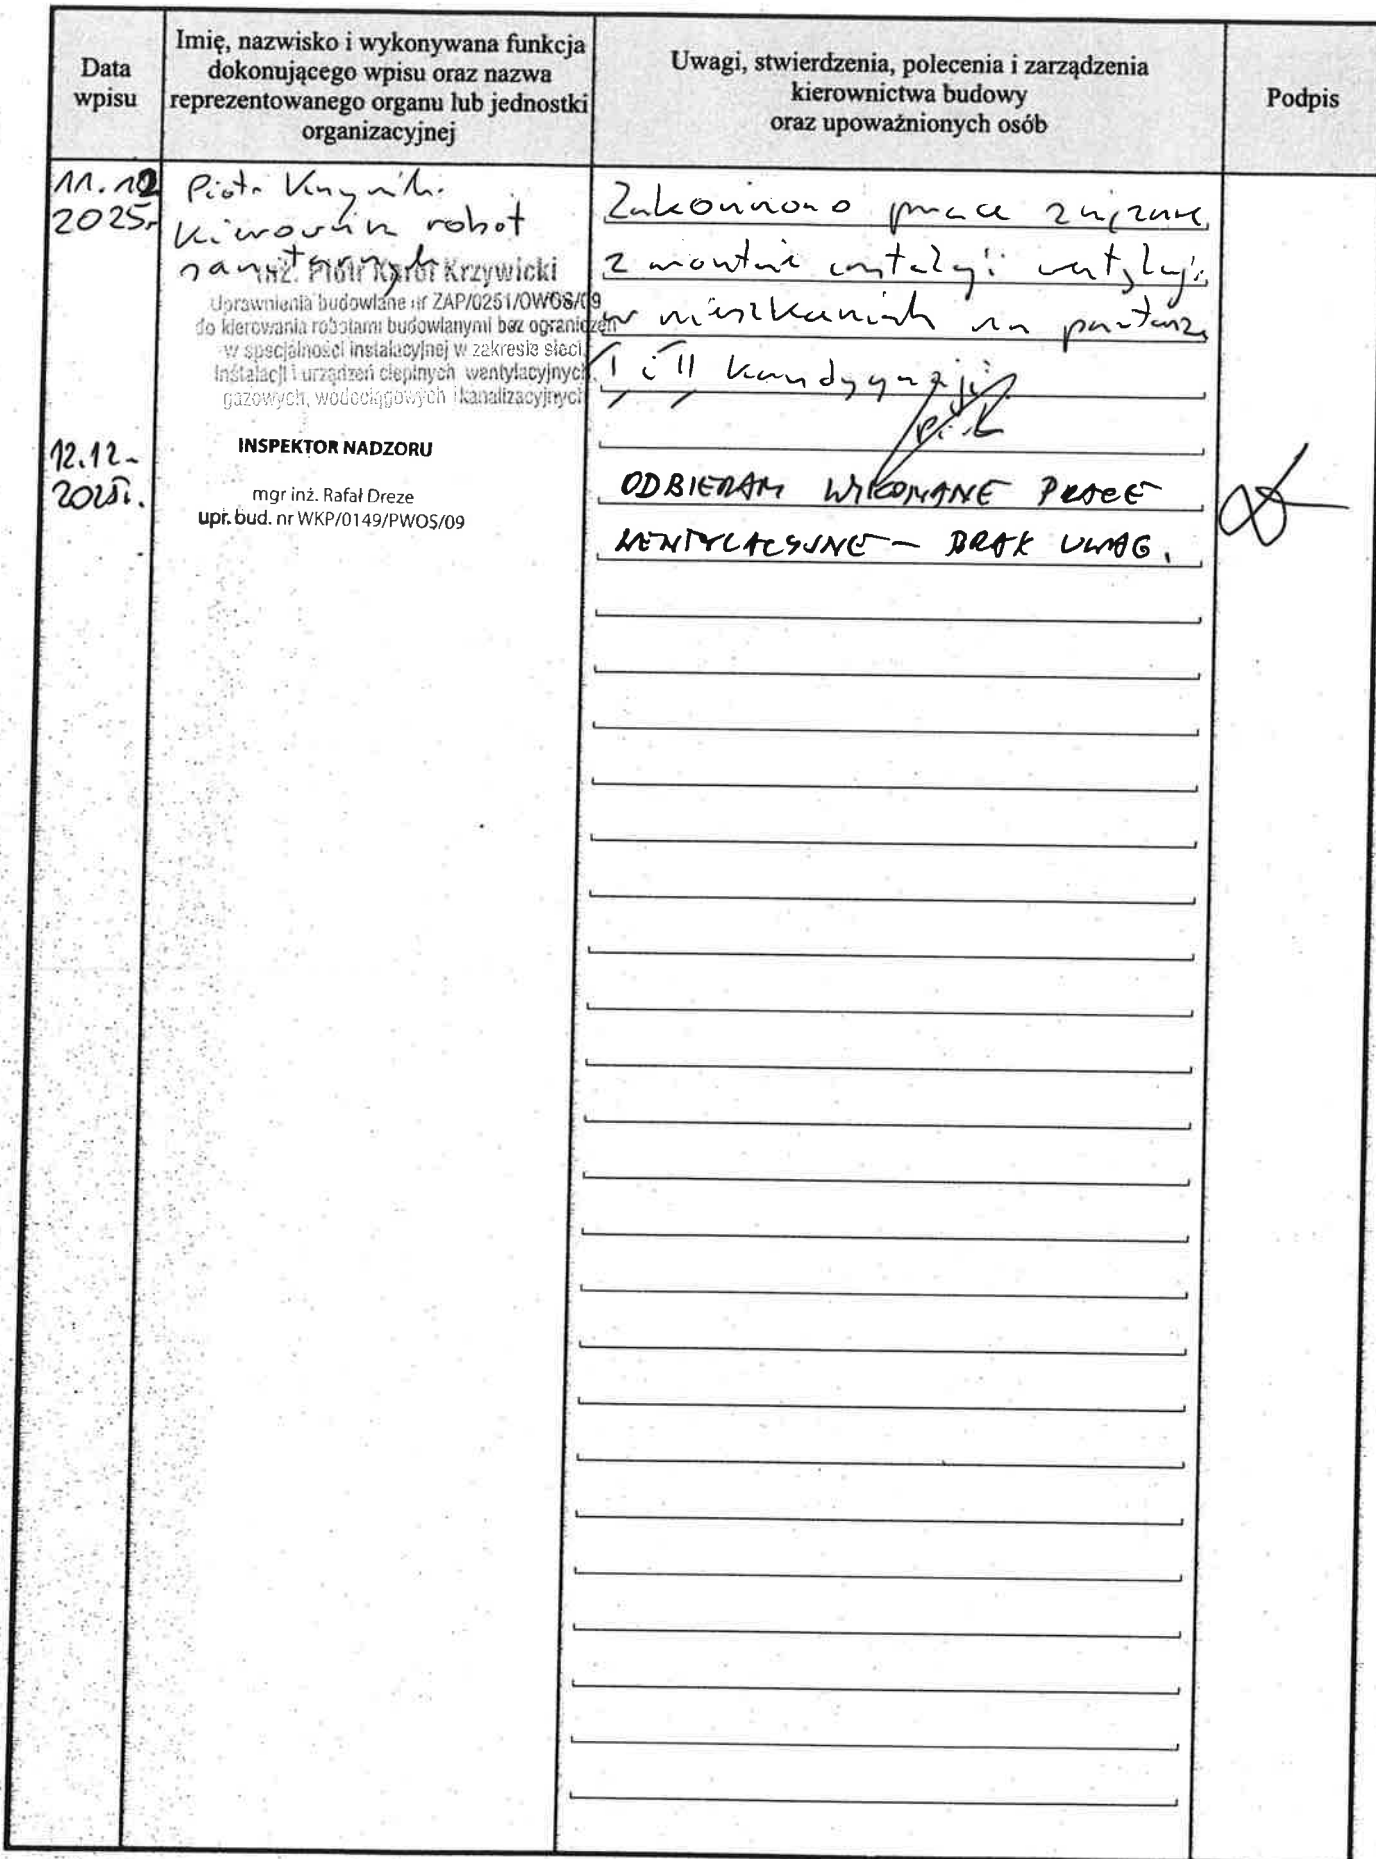 Data
wpisu
Imię, nazwisko i wykonywana funkcja
dokonującego wpisu oraz nazwa
reprezentowanego organu lub jednostki
organizacyjnej
Uwagi, stwierdzenia, polecenia i zarządzenia
kierownictwa budowy
oraz upoważnionych osób
Podpis
11.12
2025r
Piotr
Kierownik robot
sanitarnych
inż. Piotr Karol Krzywicki
Uprawnienia budowlane nr ZAP/0251/OWOS/09
do kierowania robotami budowlanymi bez ograniczeń
w specjalności instalacyjnej w zakresie sieci,
instalacji i urządzeń cieplnych wentylacyjnych,
gazowych, wodociągowych i kanalizacyjnych
Zakończono prace związane
z montażem instalacji wentylacji
w mieszkaniach na parterze
I i II kondygnacji
12.12.
2025r.
INSPEKTOR NADZORU
mgr inż. Rafał Dreze
upr. bud. nr WKP/0149/PWOS/09
ODBIERAM WYKONANE PRACE
WENTYLACYJNE – BRAK UWAG.